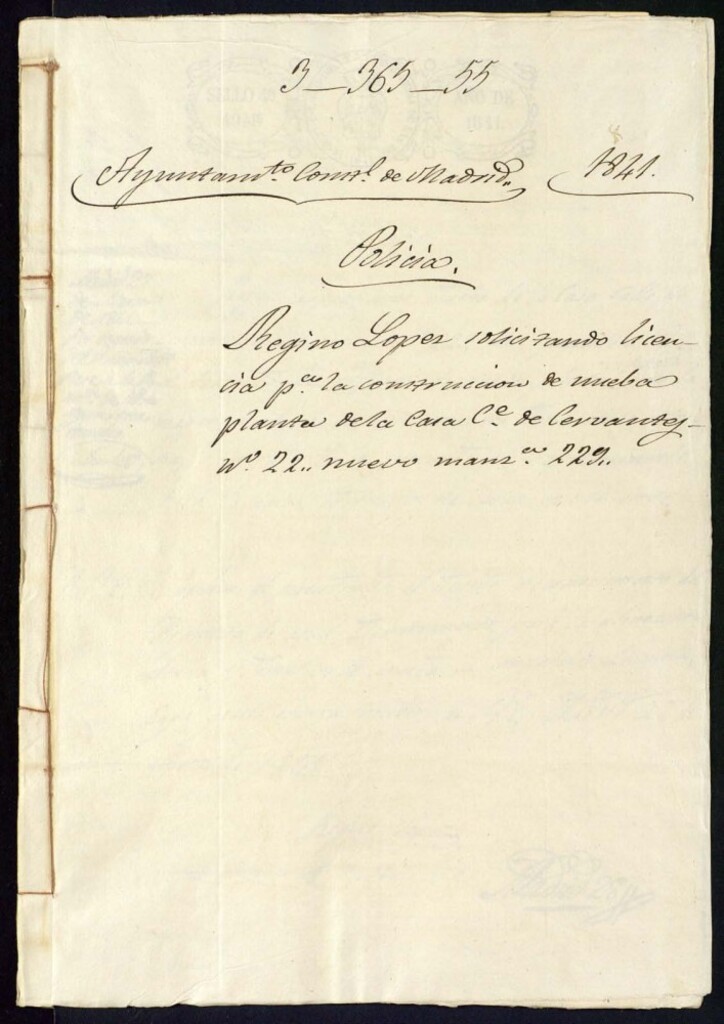 3-365-55
Ayuntamto. Constl. de Madrid. 1841.
Policia.
Regino Lopez solicitando licen-
cia pa. la construccion de nueba
planta de la Casa Ce. de Cervantes
no. 22. nuevo manza. 229.